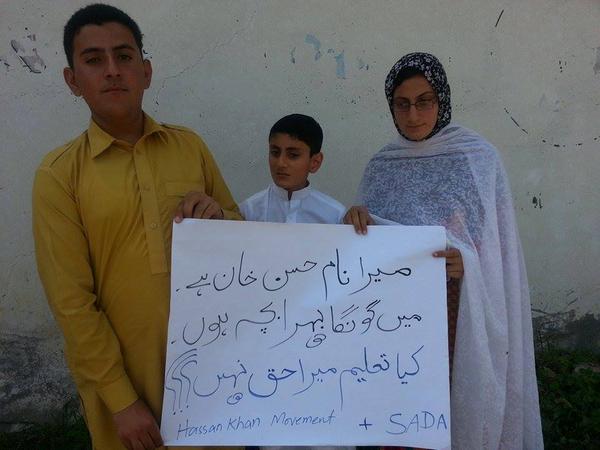 میرا نام حسن خان ہے.
میں گونگا بہرا بچہ ہوں.
کیا تعلیم میرا حق نہیں؟؟؟
Hassan Khan Movement + SADA